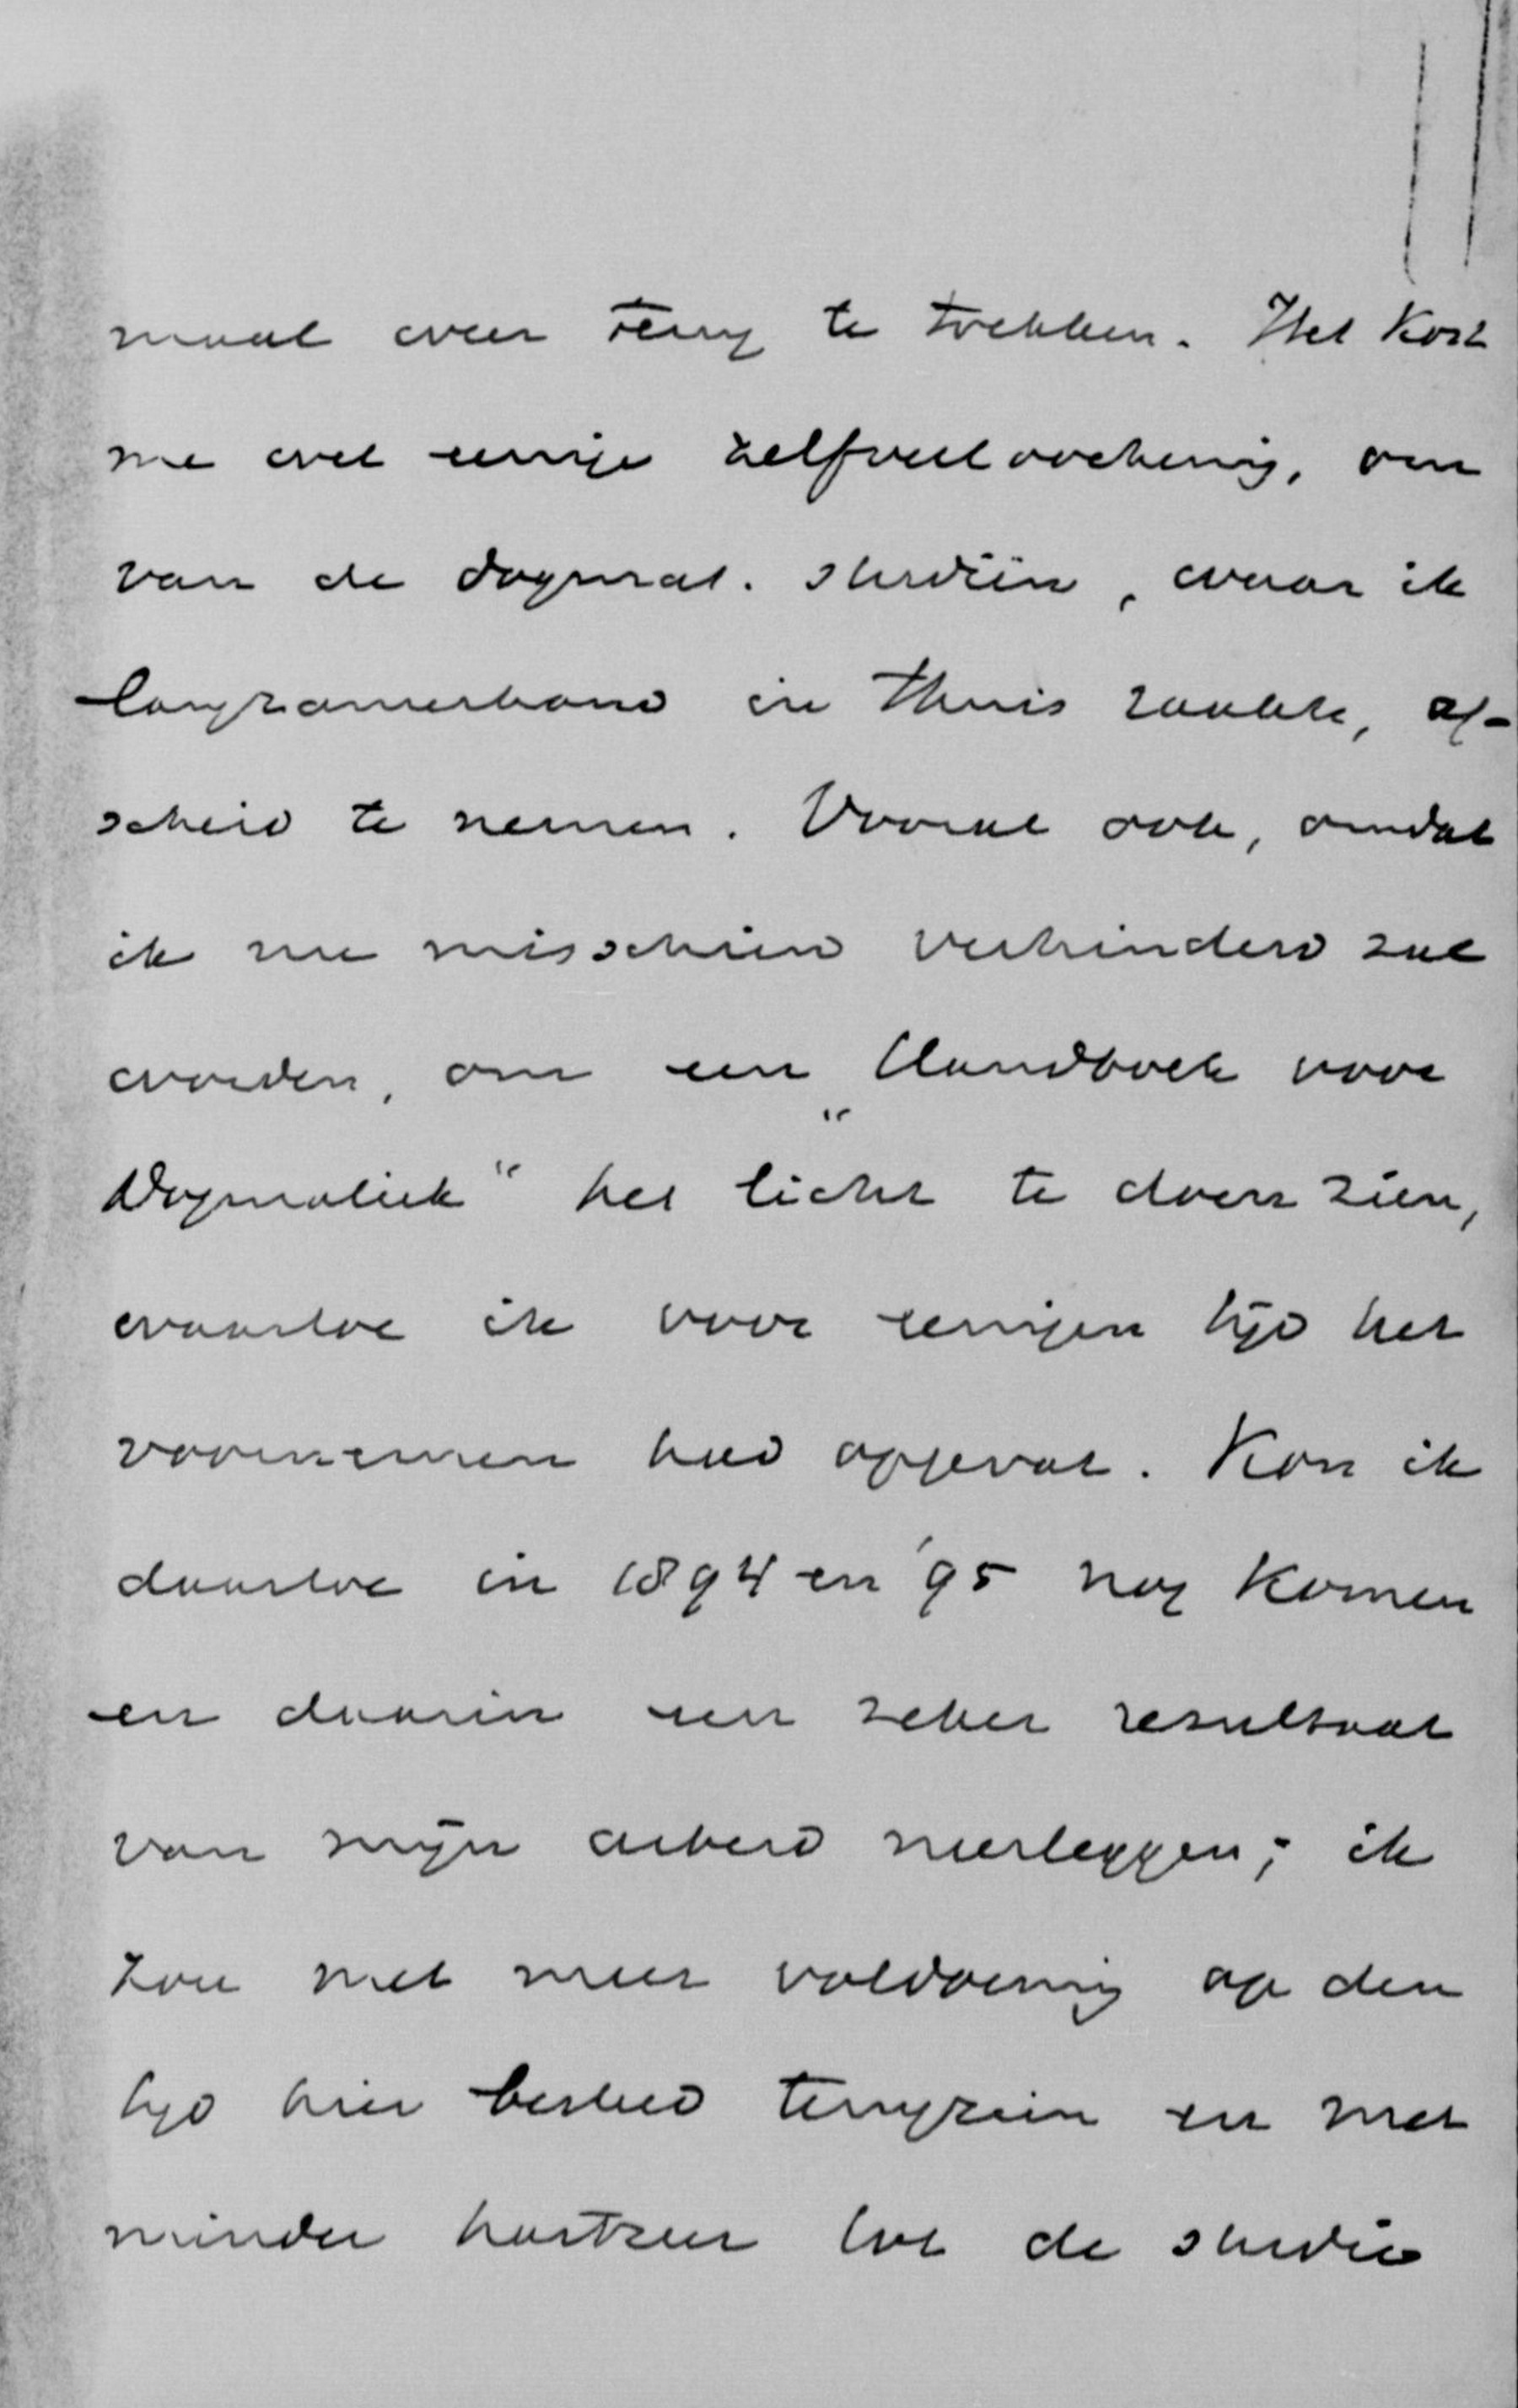 maal weer terug te trekken. Het kost
me wel eenige zelfverloochening, om
van de dogmat. studiën, waar ik
langzamerhand in thuis raakte, af-
scheid te nemen. Vooral ook, omdat
ik nu misschien verhinderd zal
worden, om een „Handboek voor
Dogmatiek" het licht te doen zien,
waartoe ik voor eenigen tijd het
voornemen had opgevat. Kon ik
daartoe in 1894 en '95 nog komen
en daarin een zeker resultaat
van mijn arbeid neerleggen; ik
zou met meer voldoening op den
tijd hier besteed terugzien en met
minder hartzeer tot de studie